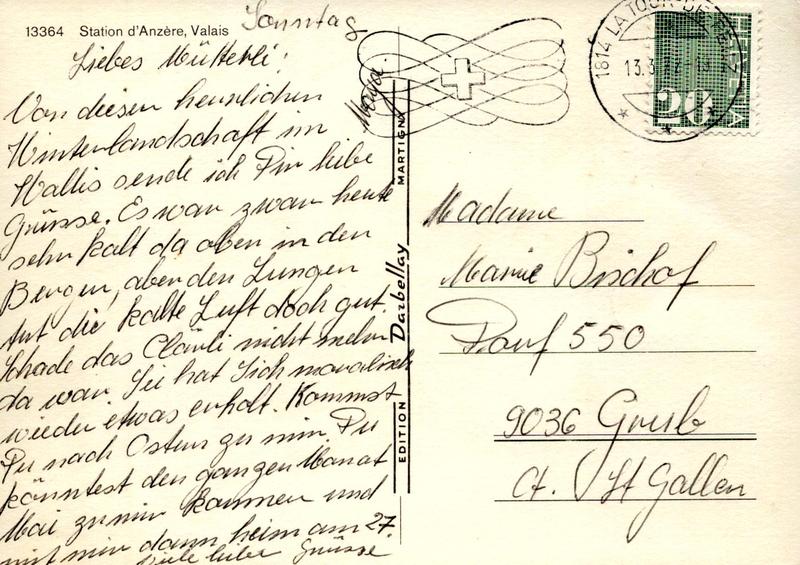 13364 Station d'Anzère, Valais
Sonntag
Liebes Mütterli!
Von diesen herrlichen
Winterlandschaft im
Wallis sende ich Dir liebe
Grüsse. Es war zwar heute
sehr kalt da oben in den
Bergen, aber den Lungen
tut die kalte Luft doch gut.
Schade das Cläuli nicht mehr
da war. Sie hat sich moralisch
wieder etwas erholt. Kommst
Du nach Ostern zu mir. Du
könntest den ganzen Monat
Mai zu mir kommen und
mit mir dann heim am 27.
viele liebe Grüsse
EDITION Darbellay MARTIGNY
1814 LA TOUR-DE-PEILZ
13.3.72-18
HELVETIA
20
Madame
Marie Bischof
Dorf 550
9036 Grub
Ct. St Gallen